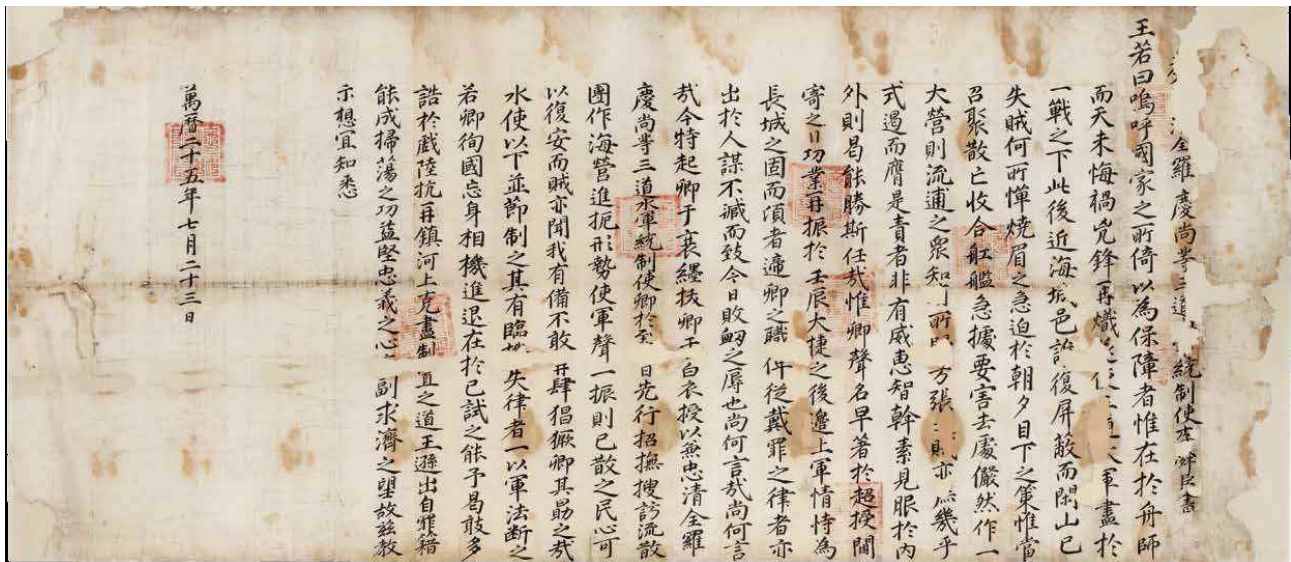 全羅慶尚等三道統制使李舜臣書
王若曰嗚呼國家之所倚以為保障者惟在於舟師
而天未悔禍兇鋒再熾軍盡於
一戰之下此後近海城邑誰復屏蔽而閑山已
失賊何所憚燒眉之急迫於朝夕目下之策惟當
召聚散亡收合舡艦急據要害去處儼然作一
大營則流逋之衆知所方張賊亦幾乎
式遏而膺是責者非有威惠智幹素見服於內
外則曷能勝斯任哉惟卿聲名早著於超授閫
寄之日功業再振於壬辰大捷之後邊上軍情恃為
長城之固而頃者遞卿之職俾從戴罪之律者亦
出於人謀不臧而致今日敗衄之辱也尚何言哉尚何言
哉今特起卿于衰絰拔卿于白衣授以兼忠清全羅
慶尚等三道水軍統制使卿於至日先行招撫搜訪流散
團作海營進扼形勢使軍聲一振則已散之民心可
以復安而賊亦聞我有備不敢再肆猖獗卿其勗之哉
水使以下並節制之其有臨失律者一以軍法斷之
若卿徇國忘身相機進退在於已試之能予曷敢多
誥於戲陸抗再鎮河上克盡制置之道王遜出自罪籍
能成掃蕩之功益堅忠義之心副求濟之望故玆教
示想宜知悉
萬曆二十五年七月二十三日